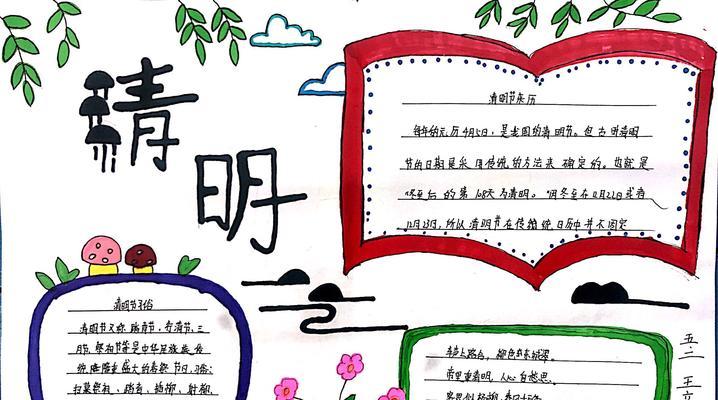 清明
清明节来历
每年的元历4月5日,是老国的清明节。但古时清明
节的日期是采用传统的方法来确定的。也就是
冬至后的第108天为清明。因冬至在12月22日或有
12月23日,所以清明节在传统统日历中并不固定
清明节习俗
清明节又称踏青节、行清节、三
月节、祭祖节等是中华民族最传
统隆重盛大的春祭节日,习俗:
扫墓祭祖、踏青、插柳、射柳、
柳色
帘里重清明,人心自愁思。
五二 王立